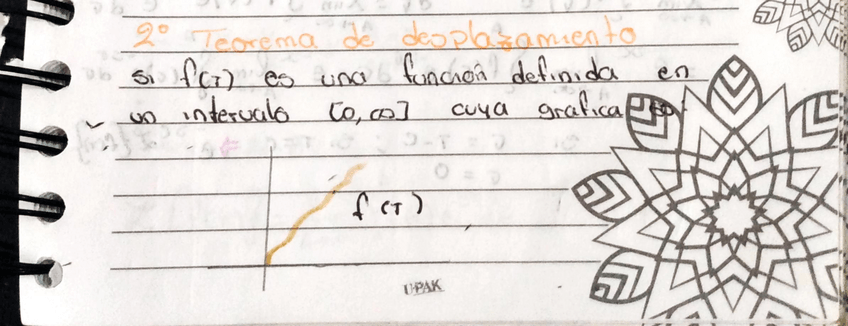 2° Teorema de desplazamiento
si f(T) es una función definida en
un intervalo [0,∞] cuya grafica
f(T)
UPAK